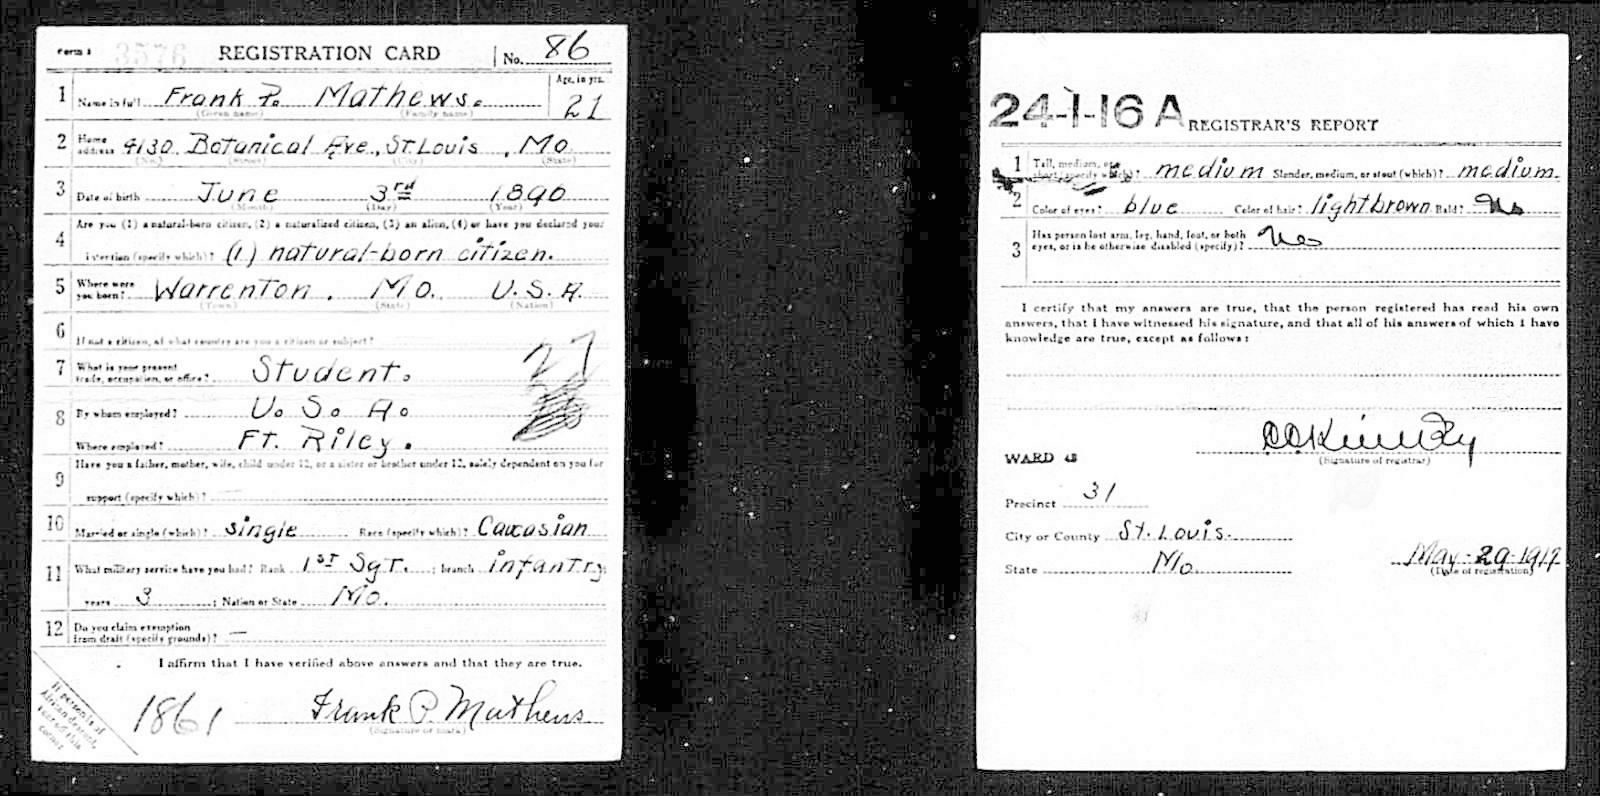 Form 1 3576 REGISTRATION CARD No. 86
1 Name in full Frank P. Mathews. Age, in yrs. 21
(Given name) (Family name)
2 Home address 4130 Botanical Ave., St Louis, Mo
(No.) (Street) (City) (State)
3 Date of birth June 3rd 1890
(Month) (Day) (Year)
4 Are you (1) a natural-born citizen, (2) a naturalized citizen, (3) an alien, (4) or have you declared your
intention (specify which)? (1) natural-born citizen.
5 Where were you born? Warrenton, Mo. U.S.A.
(Town) (State) (Nation)
6 If not a citizen, of what country are you a citizen or subject?
7 What is your present trade, occupation, or office? Student. 27
8 By whom employed? U. S. A.
Where employed? Ft. Riley.
9 Have you a father, mother, wife, child under 12, or a sister or brother under 12, solely dependent on you for
support (specify which)? —
10 Married or single (which)? single Race (specify which)? Caucasian
11 What military service have you had? Rank 1st Sgt. ; branch infantry
years 3 ; Nation or State Mo.
12 Do you claim exemption from draft (specify grounds)? —
I affirm that I have verified above answers and that they are true.
1861 Frank P Mathews
(Signature or mark)
If person is of
African descent,
tear off this
corner
24-1-16 A REGISTRAR'S REPORT
1 Tall, medium, or short (specify which)? medium Slender, medium, or stout (which)? medium.
2 Color of eyes? blue Color of hair? light brown Bald? No
3 Has person lost arm, leg, hand, foot, or both eyes, or is he otherwise disabled (specify)? No
I certify that my answers are true, that the person registered has read his own
answers, that I have witnessed his signature, and that all of his answers of which I have
knowledge are true, except as follows:
(Signature of registrar)
WARD 48
Precinct 31
City or County St. Louis.
State Mo. May-29-1917
(Date of registration)